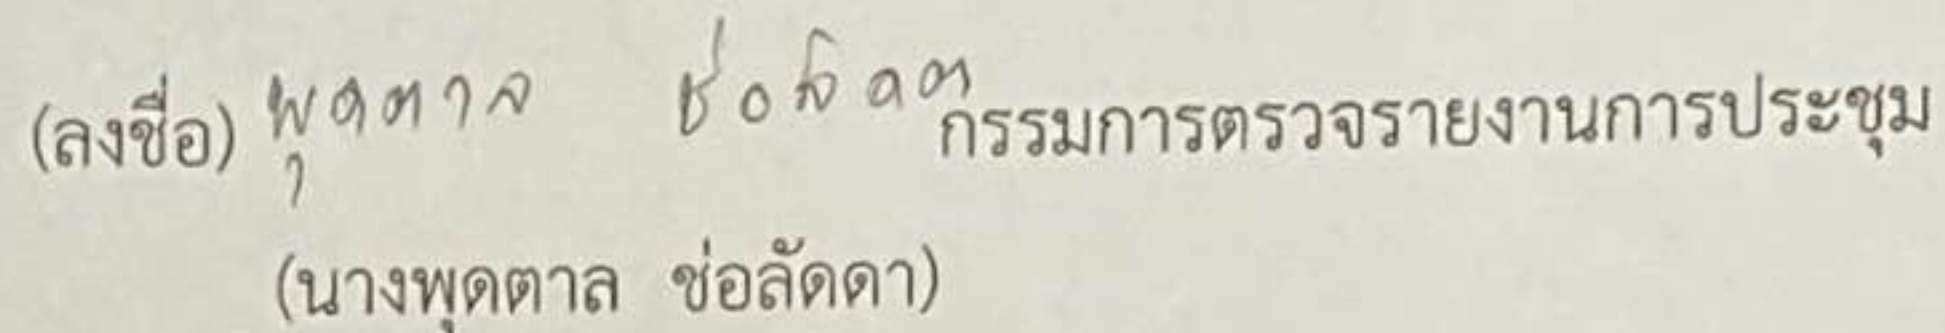 (ลงชื่อ) พุดตาล ช่อลัดดา กรรมการตรวจรายงานการประชุม
(นางพุดตาล ช่อลัดดา)